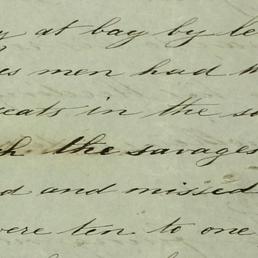 y at bay by le
es men had
eats in the s
h the savages
d and missed
were ten to one